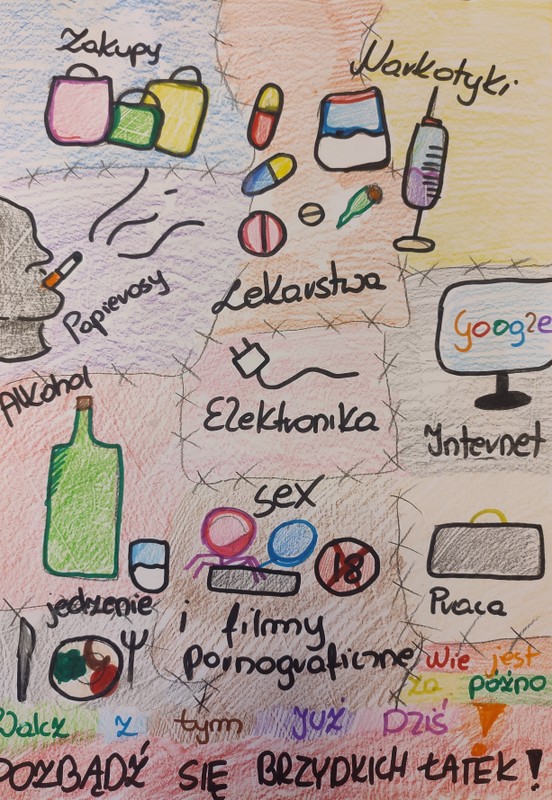 Zakupy
Narkotyki
Papierosy
Lekarstwa
Alkohol
Elektronika
Google
Internet
sex
18
i filmy
pornograficzne
Praca
jedzenie
Nie jest
za późno
Walcz z tym już Dziś!
POZBĄDŹ SIĘ BRZYDKICH ŁATEK!